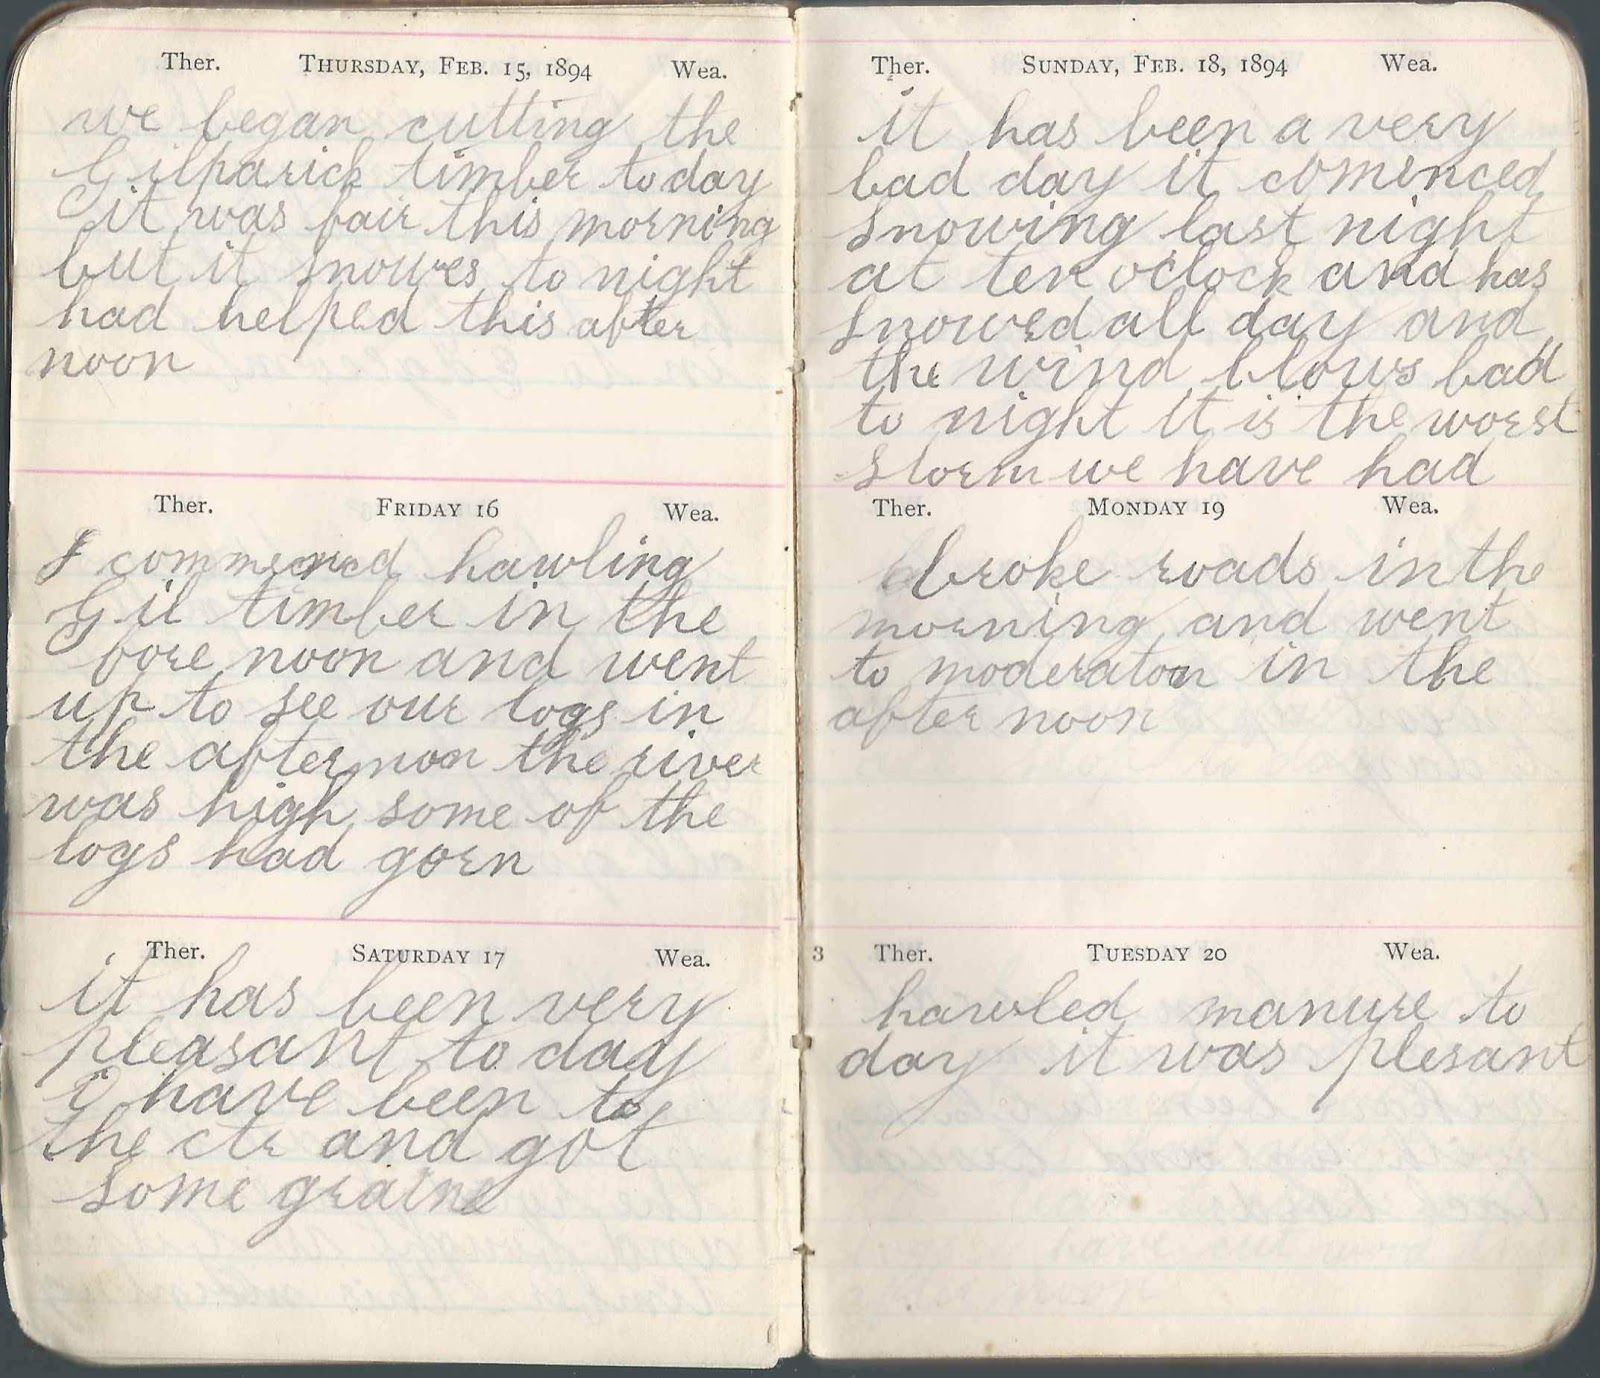 Ther. Thursday, Feb. 15, 1894 Wea.
we began cutting the
Gilparick timber to day
it was fair this morning
but it snowes to night
had helped this after
noon
Ther. Friday 16 Wea.
I commenced hawling
Gil timber in the
fore noon and went
up to see our logs in
the afternoon the river
was high some of the
logs had gorn
Ther. Saturday 17 Wea.
it has been very
pleasant to day
I have been to
the ctr and got
some graine
Ther. Sunday, Feb. 18, 1894 Wea.
it has been a very
bad day it comenced
snowing last night
at ten oclock and has
snowed all day and
the wind blows bad
to night it is the worst
storm we have had
Ther. Monday 19 Wea.
broke roads in the
morning and went
to moderaton in the
after noon
3 Ther. Tuesday 20 Wea.
hawled manure to
day it was plesant